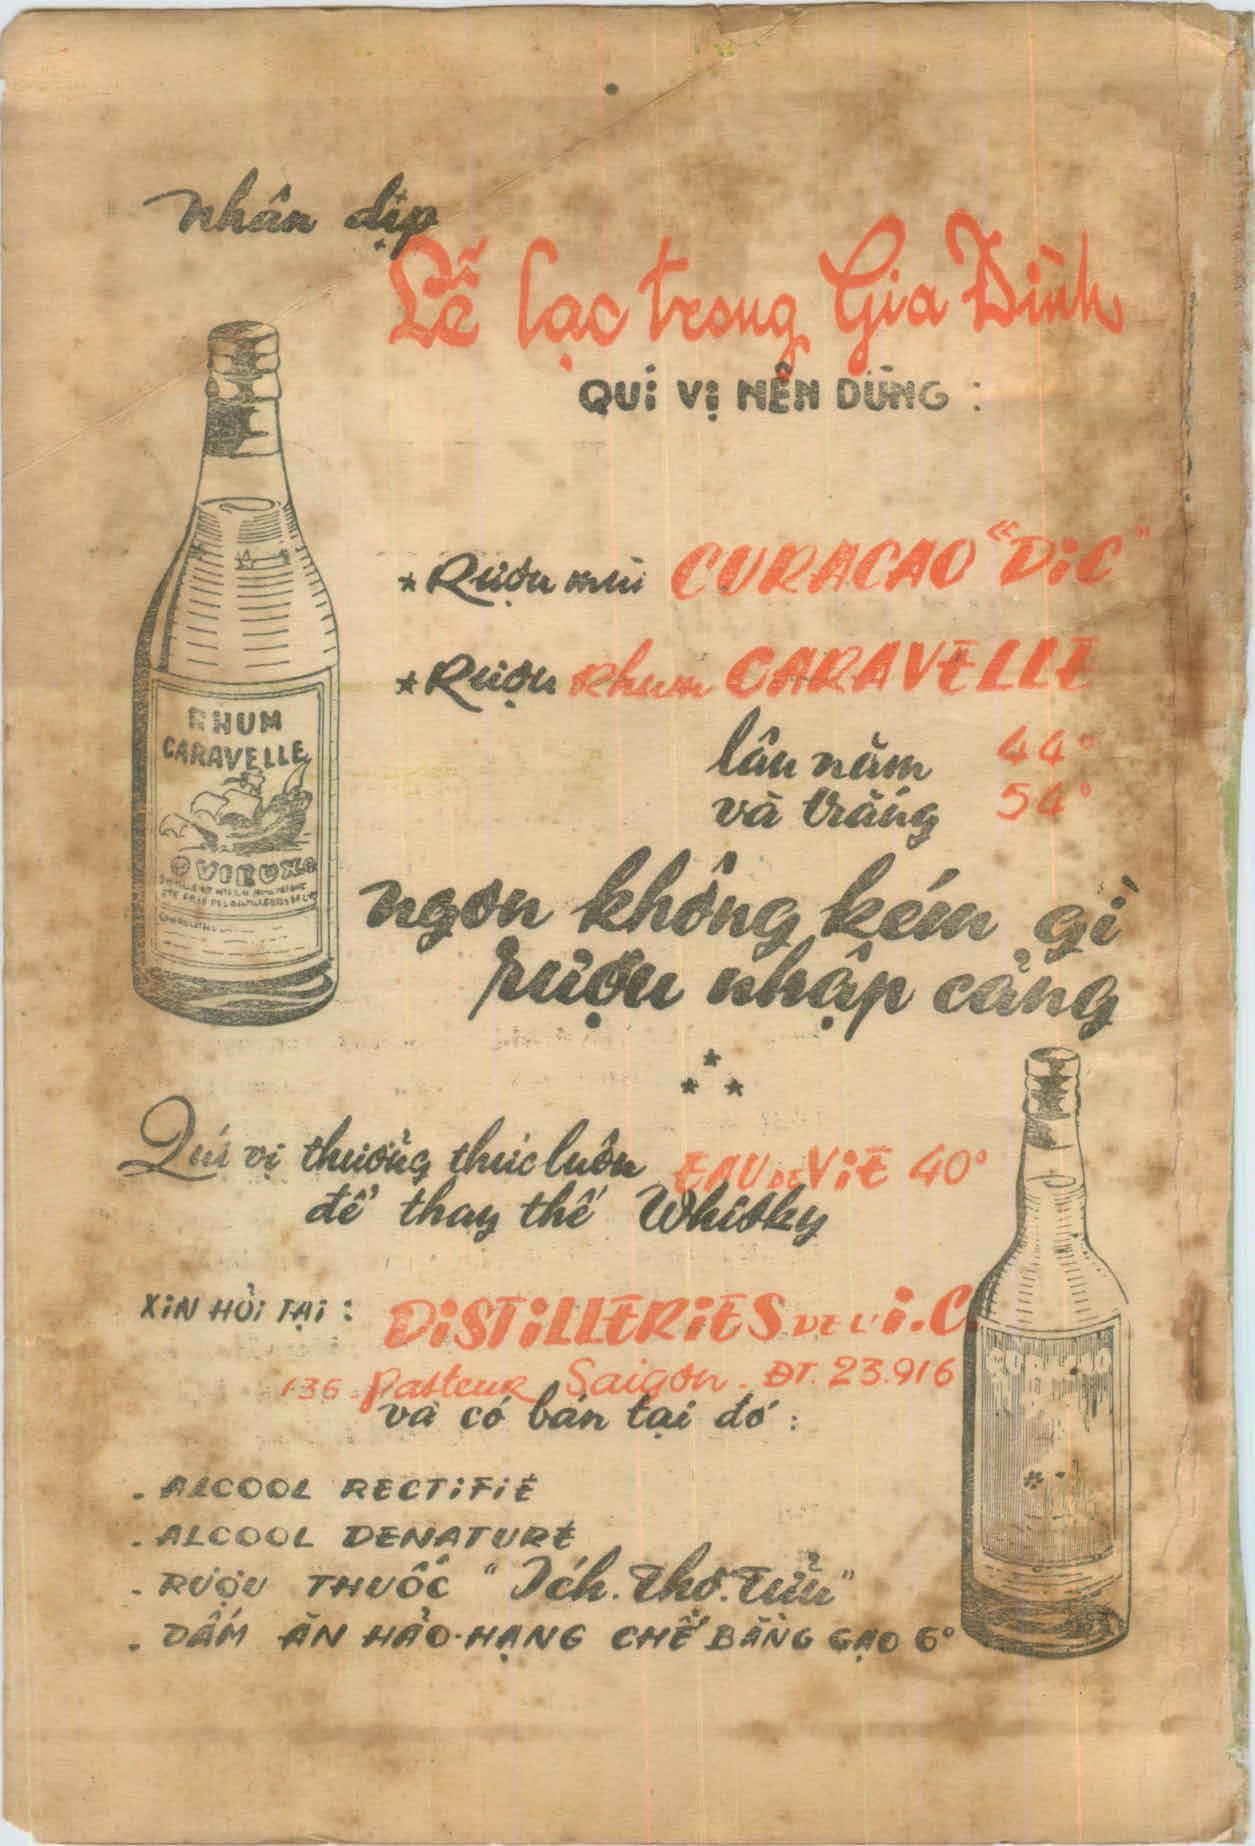 Nhân dịp
Lễ lạc trong Gia Đình
QUÍ VỊ NÊN DÙNG :
* Rượu mùi CURACAO "DIC"
* Rượu Rhum CARAVELLE
lâu năm 44°
và trắng 54°
ngon không kém gì
rượu nhập cảng
RHUM
CARAVELLE
VIEUX
* * *
Quí vị thưởng thức luôn EAU DE VIE 40°
để thay thế Whisky
XIN HỎI TẠI :
DISTILLERIES DE L'I.C
136 - Pasteur Saigon - ĐT. 23.916
và có bán tại đó :
CURACAO
. ALCOOL RECTIFIÉ
. ALCOOL DENATURÉ
. RƯỢU THUỐC "Ích.Thọ.Tửu"
. DẤM ĂN HẢO-HẠNG CHẾ BẰNG GẠO 6°